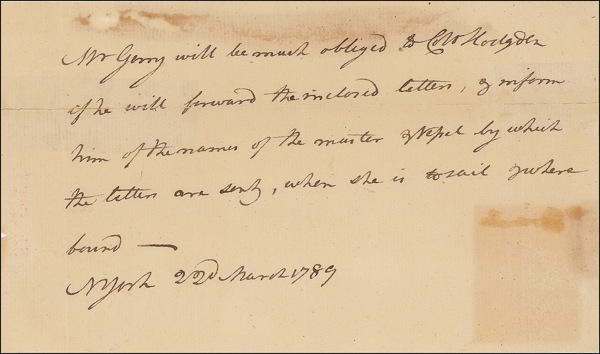 Mr Gerry will be much obliged to Colo Hodgdon
if he will forward the inclosed letters, & inform
him of the names of the master & Vessel by which
the letters are sent, when she is to sail & where
bound —
N York 22d March 1789